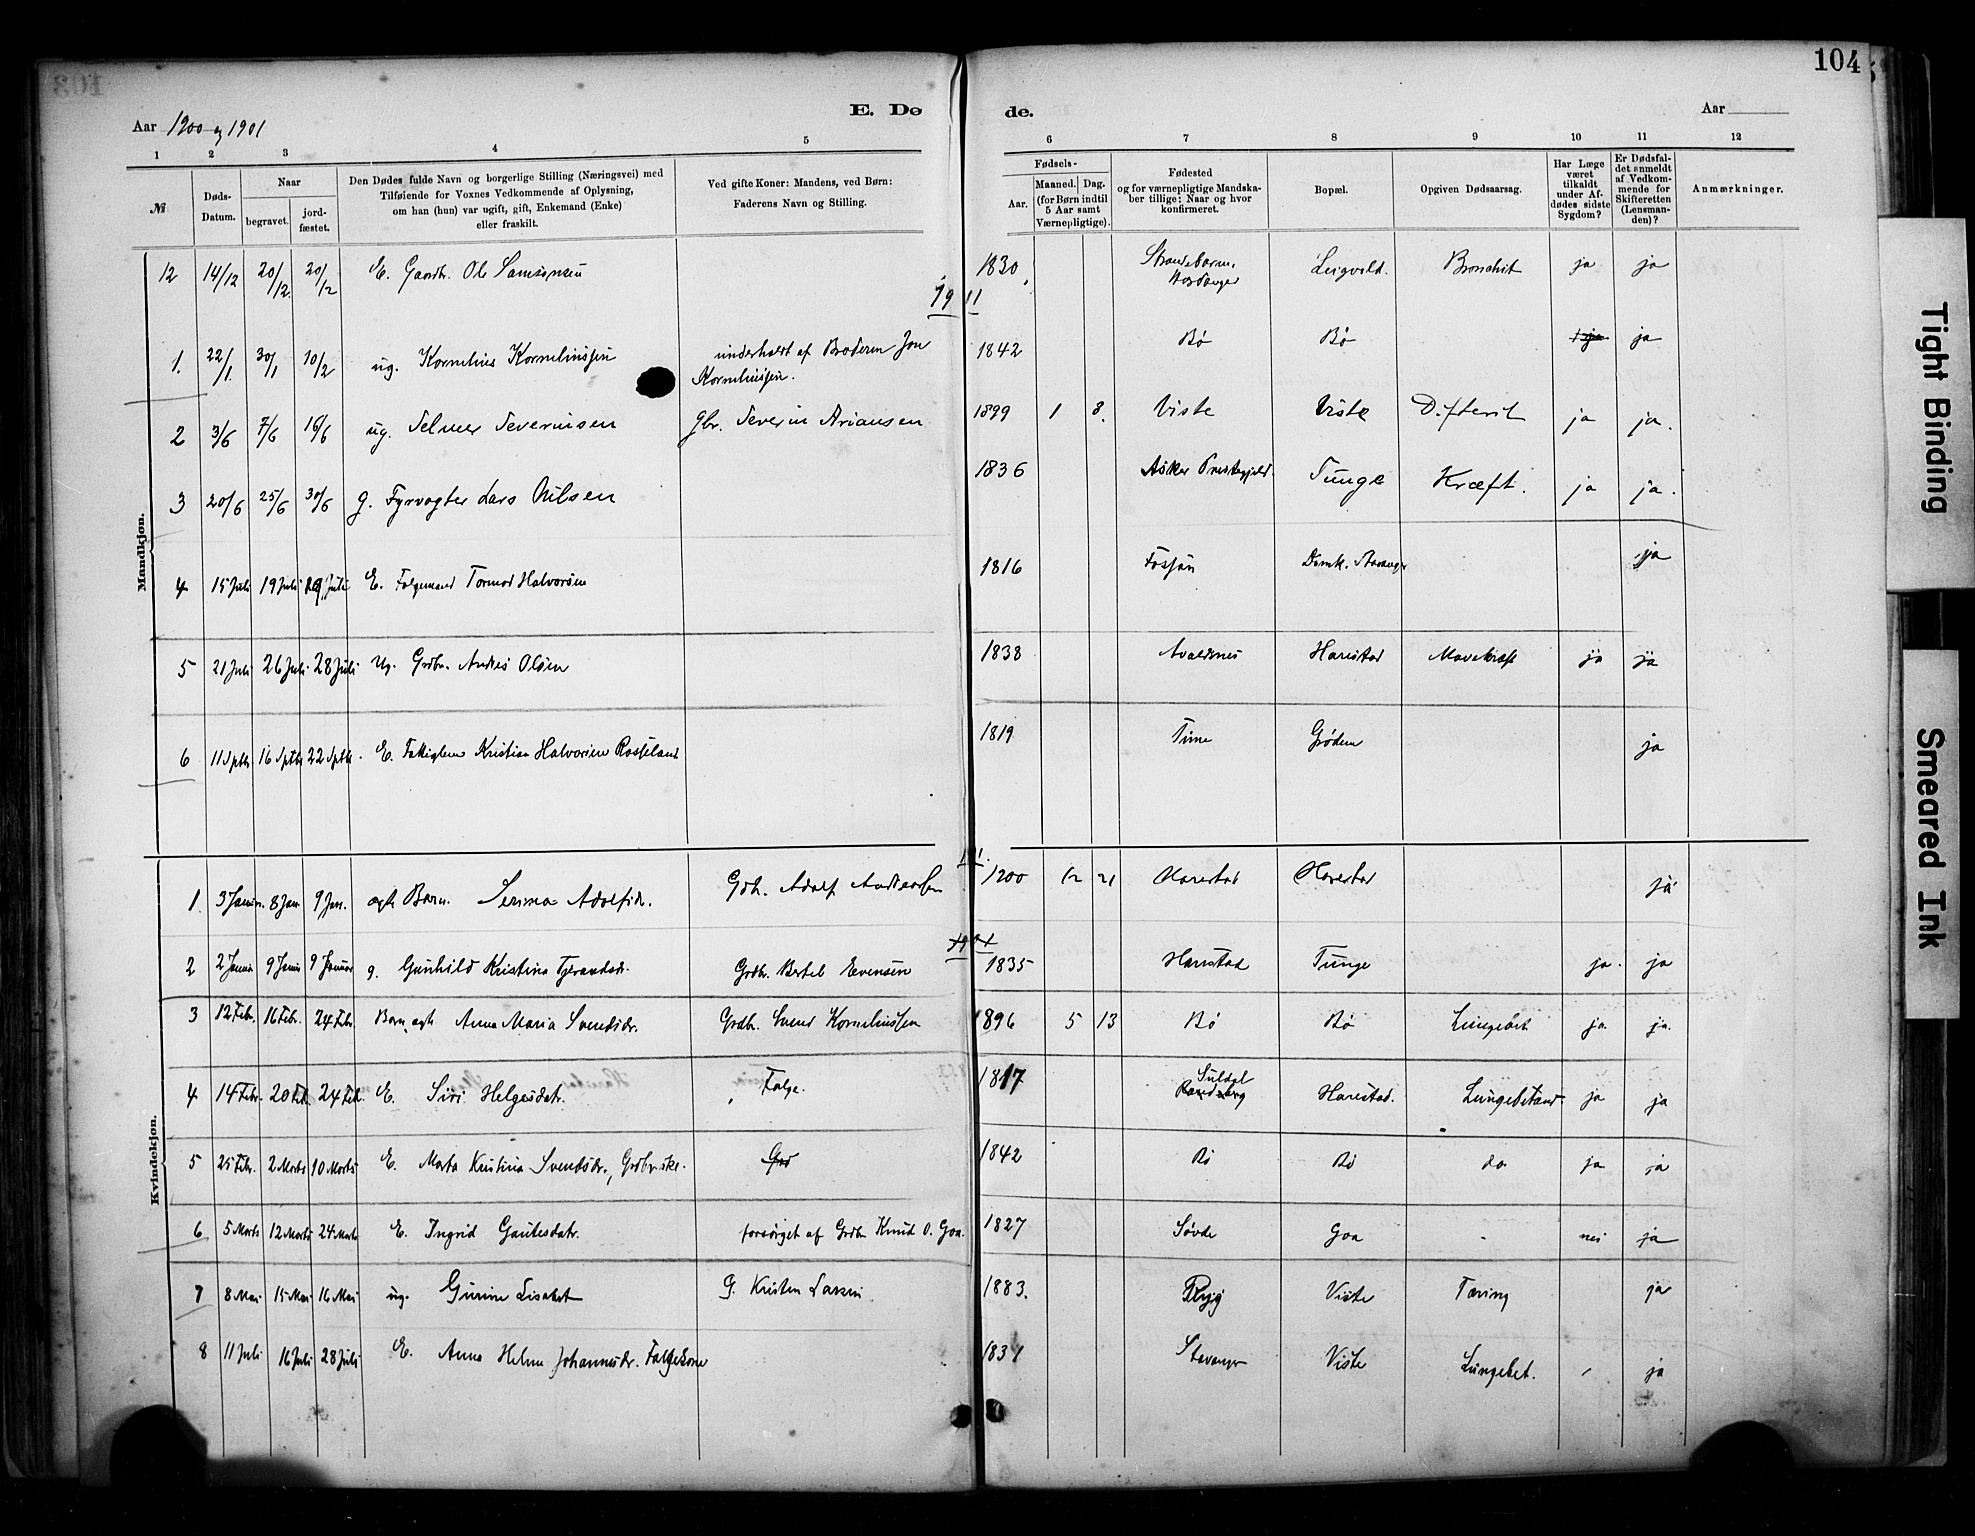 104
E. Dø de.
Aar 1900 og 1901
Aar
1 2 3 4 5 6 7 8 9 10 11 12
№
Døds-Datum.
Naar
begravet.
jord-fæstet.
Den Dødes fulde Navn og borgerlige Stilling (Næringsvei) med
Tilføiende for Voxnes Vedkommende af Oplysning,
om han (hun) var ugift, gift, Enkemand (Enke)
eller fraskilt.
Ved gifte Koner: Mandens, ved Børn:
Faderens Navn og Stilling.
Fødsels-
Aar.
Maaned. Dag.
(for Børn indtil
5 Aar samt
Værnepligtige).
Fødested
og for værnepligtige Mandska-
ber tillige: Naar og hvor
konfirmeret.
Bopæl.
Opgiven Dødsaarsag.
Har Læge
været
tilkaldt
under Af-
dødes sidste
Sygdom?
Er Dødsfal-
det anmeldt
af Vedkom-
mende for
Skifteretten
(Lensman-
den)?
Anmærkninger.
Mandkjøn.
12 14/12 20/12 20/12 E. Gaardb. Ole Samsonsen 1830 Strandebarm, Hardanger Bronchit ja ja
1. 22/1. 30/1 10/2 ug. Kornelius Korneliussen underholdt af Broderen Jon
Korneliussen. 1842 Bø Bø ja ja
2 3/6 7/6 16/6 ug. Selmer Severinsen gbr. Severin Ariansen 1899 1 8. Viste Viste Difterit ja ja.
3 20/6 25/6 30/6 g. Fyrvogter Lars Nilsen 1836 Asker Prestegjeld. Tunge Kræft. ja ja.
4 15 Juli 19 Juli Juli E. Tormod Halvorsen 1816 Fossan ja
5 21 Juli 26 Juli 28 Juli Ug. Grdbr. Olsen 1838 Avaldsnes Harestad Mavekræft ja ja
6 11 Sptb 16 Sptb 22 Sptb. E. Kristian Halvorsen Rosseland 1819 Time Grødem ja
Kvindekjøn.
1. 8 Jan 9 Jan. ægte Barn. Serina Adolfsdr. Adolf Andreassen 1900 12 21 Harestad Harestad ja
2 2 Januar 9 Januar 9 Januar g. Gunhild Kristina Tjerandsdr. Grdbr. Bertel Evensen 1835 Harestad Tunge ja. ja
3 12 Febr. 16 Febr. 24 Febr. Barn, ægte Anna Maria Svendsdr. Grdbr. Svend Korneliussen 1896 5 13 Bø Bø ja. ja.
4 14 Febr. 20 Feb. 24 Feb. E. Siri Helgesdatr. 1817 Suldal Harestad. Lungebetænd. ja ja
5 25 Febr. 2 Marts 10 Marts E. Marta Kristina Svendsdr., Grdbrske. 1842 Bø Bø do ja ja
6 5 Marts 12 Marts 24 Marts E. Ingrid Gautesdatr. forsørget af Grdbr Knud O. Goa. 1827 Søvde Goa - nei ja
7 8 Mai 15 Mai 16 Mai ug. Gurine Lisabet G. Kristen Larsen 1883. Viste Tæring ja
8 11 Juli 16 Juli 28 Juli E. Anna Helene Johannesdr. 1831 Stavanger Viste Lungebet. ja
Tight Binding
Smeared Ink